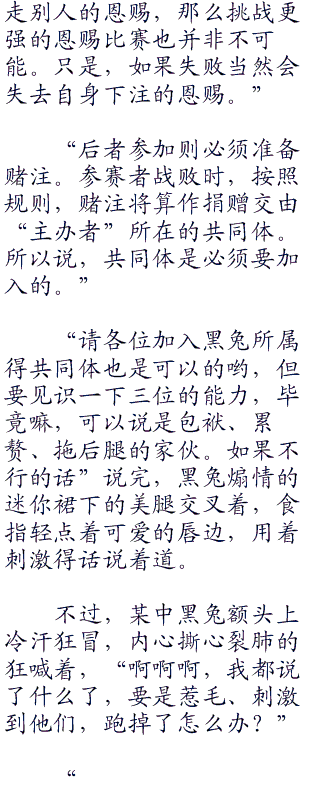 走别人的恩赐，那么挑战更
强的恩赐比赛也并非不可
能。只是，如果失败当然会
失去自身下注的恩赐。”
“后者参加则必须准备
赌注。参赛者战败时，按照
规则，赌注将算作捐赠交由
“主办者”所在的共同体。
所以说，共同体是必须要加
入的。”
“请各位加入黑兔所属
得共同体也是可以的哟，但
要见识一下三位的能力，毕
竟嘛，可以说是包袱、累
赘、拖后腿的家伙。如果不
行的话”说完，黑兔煽情的
迷你裙下的美腿交叉着，食
指轻点着可爱的唇边，用着
刺激得话说着道。
不过，某中黑兔额头上
冷汗狂冒，内心撕心裂肺的
狂喊着，“啊啊啊，我都说
了什么了，要是惹毛、刺激
到他们，跑掉了怎么办？”
“